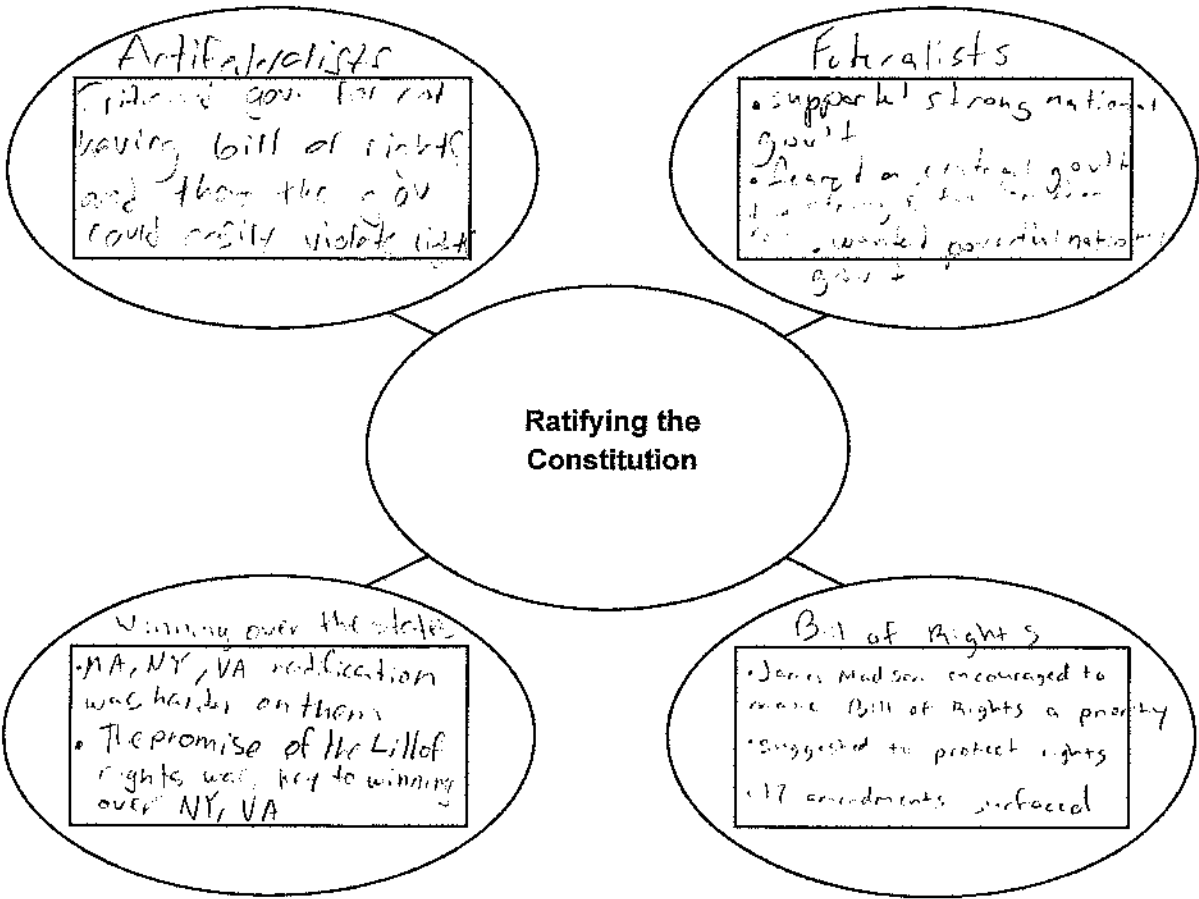 Antifederalists
gov for not
having bill of rights
and then the gov
could easily violate rights
Federalists
• supported strong national
gov't
• feared a central gov't
• wanted powerful national
gov't
Ratifying the
Constitution
Winning over the states
• MA, NY, VA
was harder on them
• The promise of the bill of
rights was key to winning
over NY, VA
Bill of Rights
• James Madison encouraged to
make Bill of Rights a priority
• Suggested to protect rights
• 17 amendments surfaced